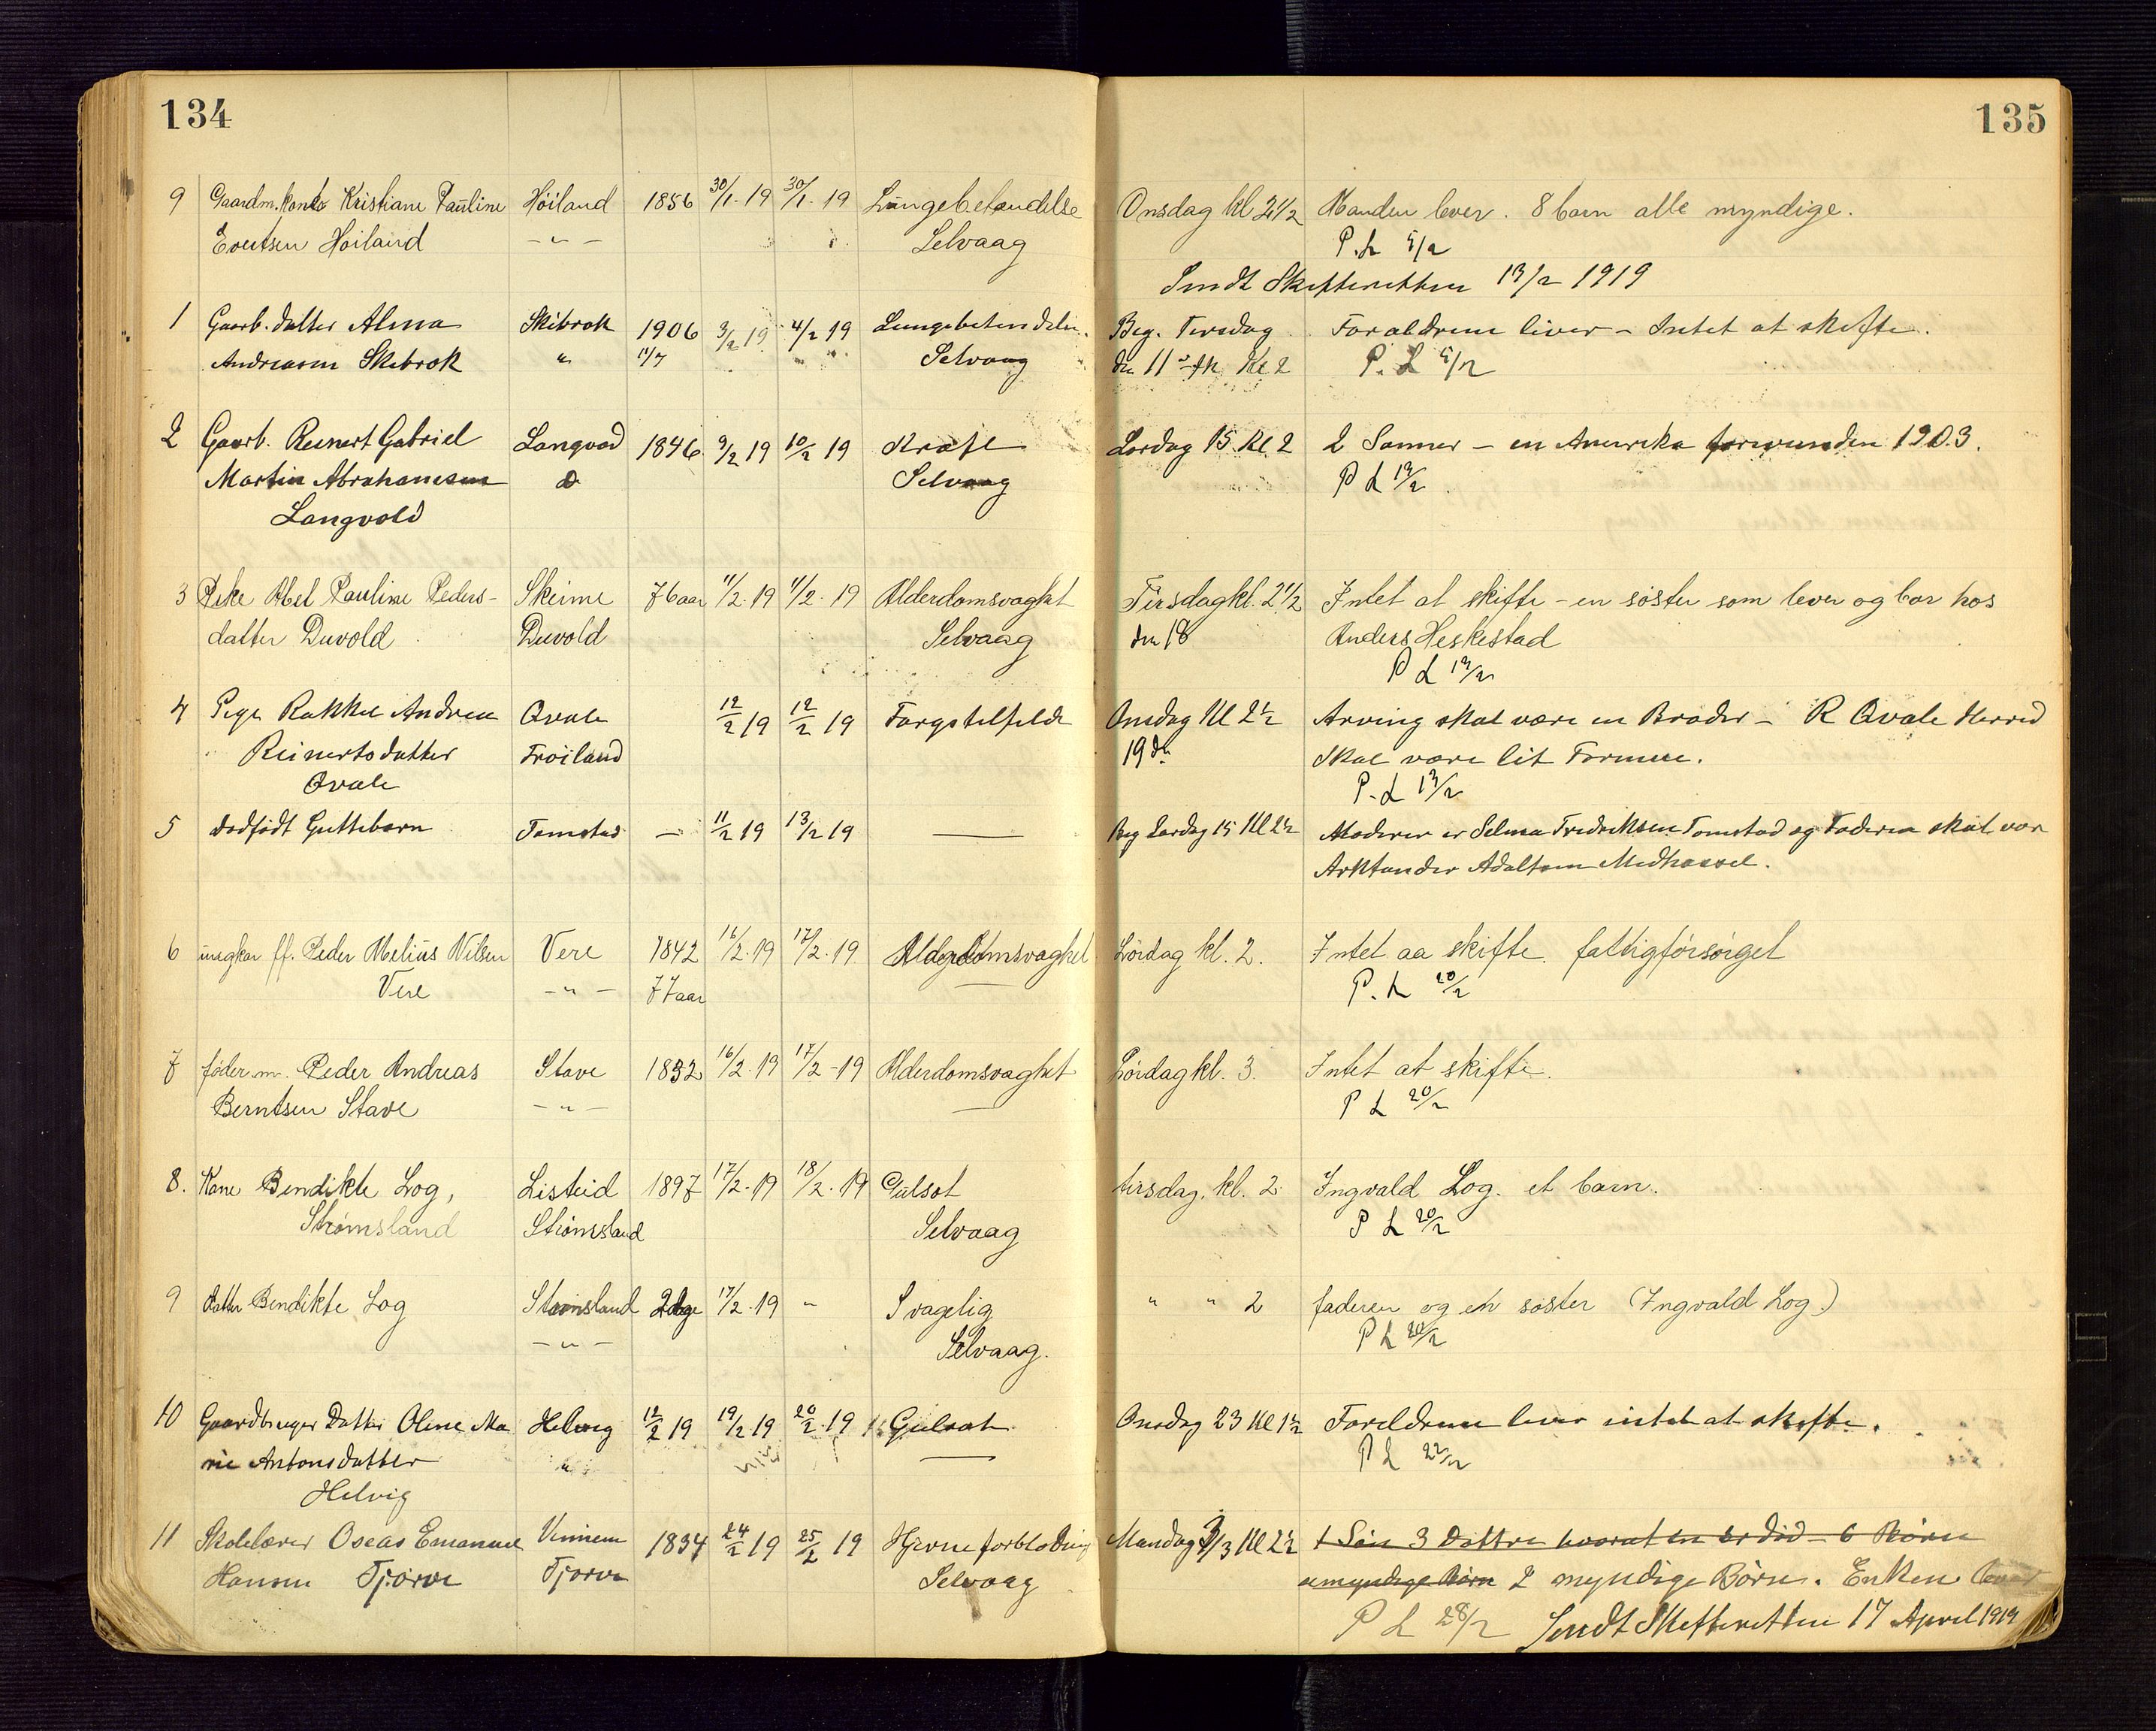 134
135
9 Gaardm. Kone Kristiane Pauline Höiland 1856 30/1. 19 30/1. 19 Lungebetændelse Onsdag kl 2 1/2 Manden lever. 8 barn alle myndige.
Evertsen Höiland -"- Selvaag P.L 5/2
Sendt Skifteretten 13/2 1919
1 Gaarb. datter Alma Skibrok 1906 3/2 19 4/2 19 Lungebetendelse. Beg. Tirsdag Foraldrene liver - Intet at skifte.
Andreasen Skibrok " 11/7 Selvaag den 11 Kl 2 P. L 5/2
2 Gaarb. Reinert Gabriel Langvod 1846 9/2 19 10/2 19 Kraft Lørdag 15 Kl. 2 2 Sønner - en Amerika forsvunden 1903.
Martin Abrahamsen D Selvaag P L 12/2
Langvold
3 Pike Abel Pauline Peders- Skeime 76 aar 11/2. 19 11/2. 19 Alderdomsvaghet Tirsdag kl. 2 1/2 Intet at skifte - en søster som lever og bor hos
datter Duvold Duvold Selvaag den 18 Anders Heskestad
P L 13/2
4 Pige Rakkel Andrea Qvale 12/2 19 12/2 19 Onsdag Kl 2 1/2 Arving skal være en Broder - R Qvale Herred
Reinertsdatter Fröiland 19 de Skal være lit Formue.
Qvale P.L 13/2
5 Dødfødt Guttebarn Tomstad - 11/2 19 13/2 19 — Beg Lørdag 15 Kl 2 1/2 Moderen er Selma Fredriksen Tomstad og Faderen skal vær
Arktander Adaltsen Midhassel.
6 ungkar ff. Peder Melius Nilsen Vere 1842 16/2. 19 17/2. 19. Alderdomsvaghet Lördag kl. 2. Intet aa skifte. fattigförsörget
Vere -"- 77 aar — P. L 20/2
7 føder m. Peder Andreas Stave 1832 16/2. 19 17/2 - 19 Alderdomsvaghet Lördag kl. 3. Intet at skifte.
Berntsen Stave -"- — P L 20/2
8. Kone Bendikte Log, Listeid 1897 17/2. 19 18/2. 19 Gulsot tirsdag. kl. 2 Ingvald Log. et barn.
Strømsland Strömsland Selvaag P L 20/2
9 datter Bendikte Log Strömsland 2 dage 17/2. 19 " Svagelig " " 2 faderen og en søster (Ingvald Log.)
-"- Selvaag. P L 20/2
10 Gaardbruger Datter Oline Ma Helvig 12/2 19 19/2 19 20/2. 19 Gulsot Onsdag 23 Kl 1 1/2 Foreldrene lever intet at skifte.
rie Antonsdatter " — P L 22/2
Helvig
11 Skolelærer Oseas Emanuel Vinnem 1834 24/2 19 25/2 19 Hjerneforblødning Mandag 3/3 Kl 2 1/2 1 Sön 3 Döttre hvorat en er död - 6 Börn
Hansen Tjörve Tjørve Selvaag umyndige Börn 2 myndige Börn. Enken lever
P L 28/2 Sendt Skifteretten 17 April 1919